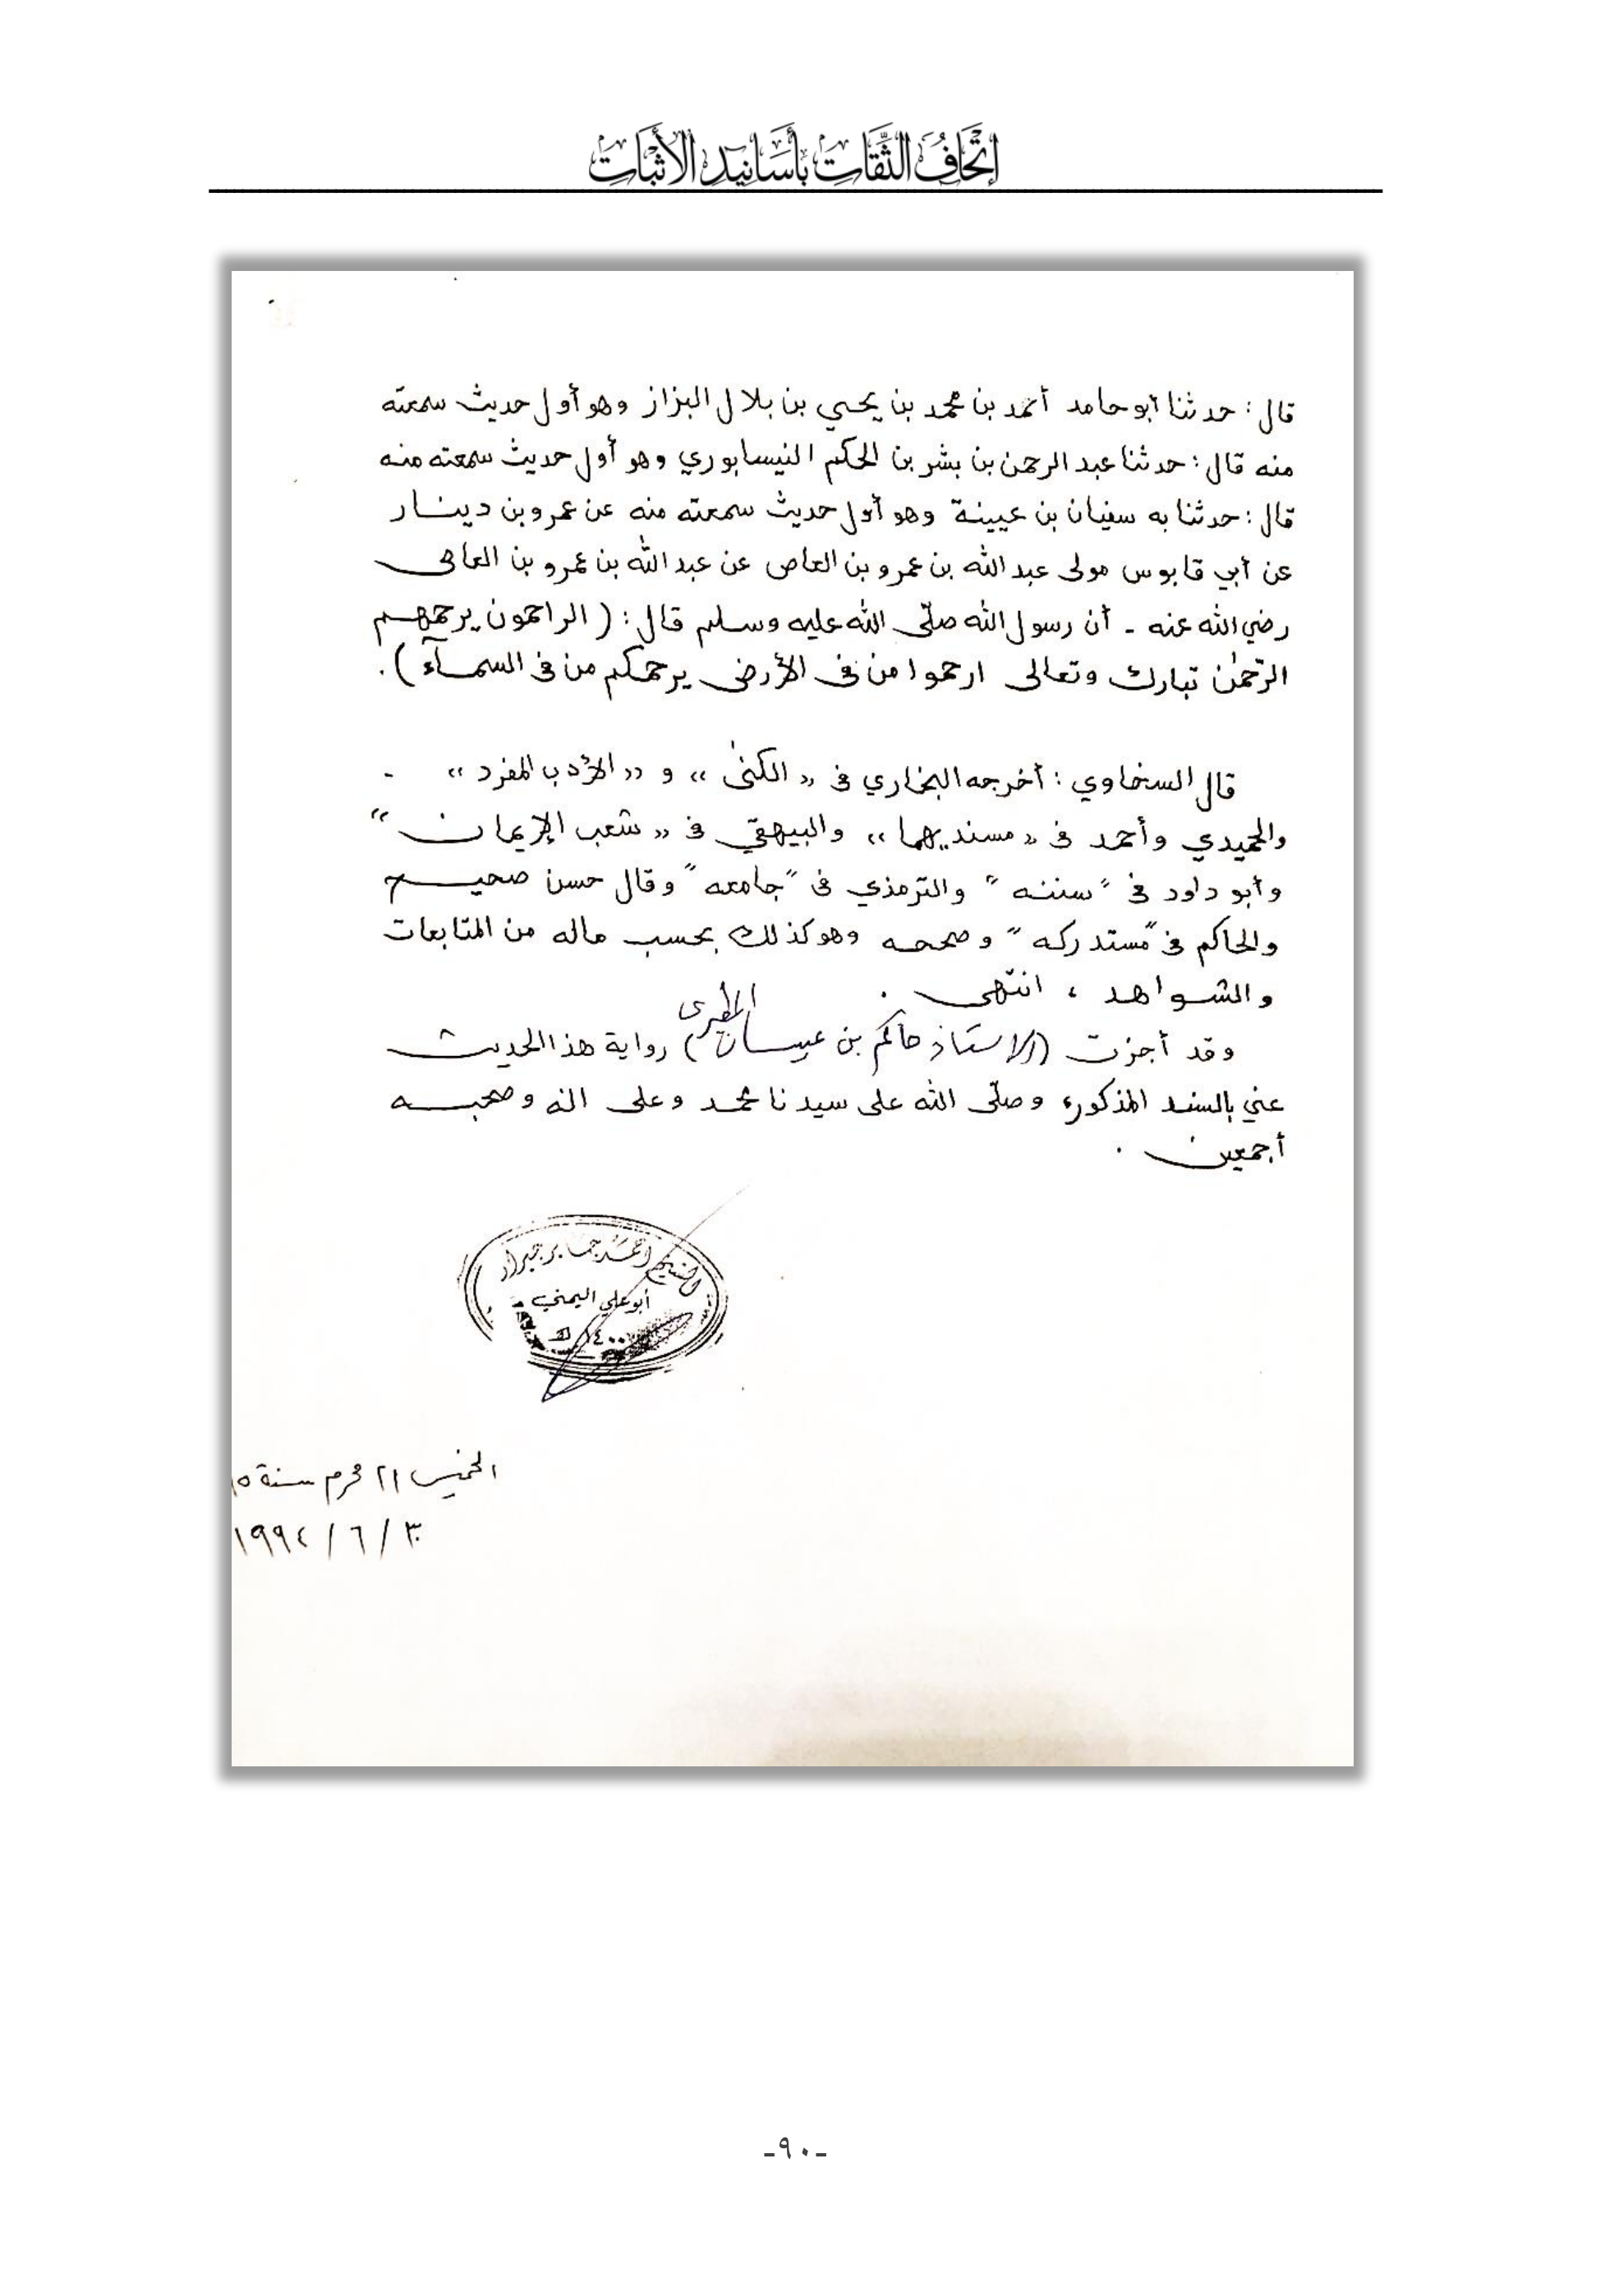 إِتْحَافُ الثِّقَاتِ بِأَسَانِيدِ الأَثْبَاتِ
قال : حدثنا أبو حامد أحمد بن محمد بن يحيى بن بلال البزاز وهو أول حديث سمعته
منه قال : حدثنا عبد الرحمن بن بشر بن الحكم النيسابوري وهو أول حديث سمعته منه
قال : حدثنا به سفيان بن عيينة وهو أول حديث سمعته منه عن عمرو بن دينار
عن أبي قابوس مولى عبد الله بن عمرو بن العاص عن عبد الله بن عمرو بن العاص
رضي الله عنه - أن رسول الله صلّى الله عليه وسلم قال : ( الراحمون يرحمهم
الرّحمٰن تبارك وتعالى ارحموا من في الأرض يرحمكم من في السمآء ) .
قال السخاوي : أخرجه البخاري في « الكنىٰ » و « الأدب المفرد » -
والحميدي وأحمد في « مسنديهما » والبيهقي في « شعب الإيمان "
وأبو داود في " سننه " والترمذي في " جامعه " وقال حسن صحيح
والحاكم في " مستدركه " وصححه وهو كذلك بحسب ماله من المتابعات
والشواهد ، انتهى .
وقد أجزت ( الاستاذ حاكم بن عبيسان المطيري ) رواية هذا الحديث
عني بالسند المذكور، وصلّى الله على سيدنا محمد وعلى اله وصحبه
أجمعين .
أحمد جابر جبران
أبو علي اليمني
١٤٠٠ هـ
الخميس ٢١ محرم سنة ١٥
٣٠ / ٦ / ١٩٩٤
-٩٠-